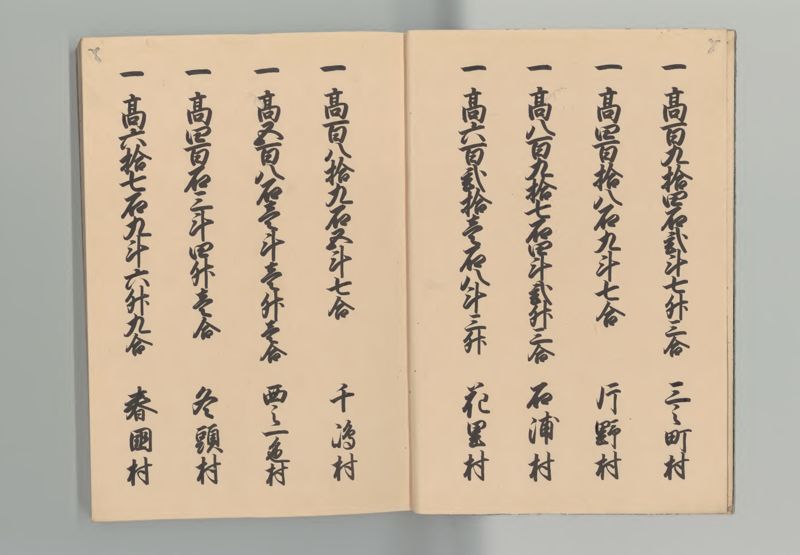 一 高百九拾四石弐斗七升三合 三之町村
一 高四百拾八石九斗七合 片野村
一 高八百九拾七石四斗弐升三合 石浦村
一 高六百弐拾壱石八斗三升 花里村
一 高百八拾九石五斗七合 千嶋村
一 高五百八石壱斗壱升壱合 西之一色村
一 高四百石三斗四升壱合 冬頭村
一 高六拾七石九斗六升九合 春國村